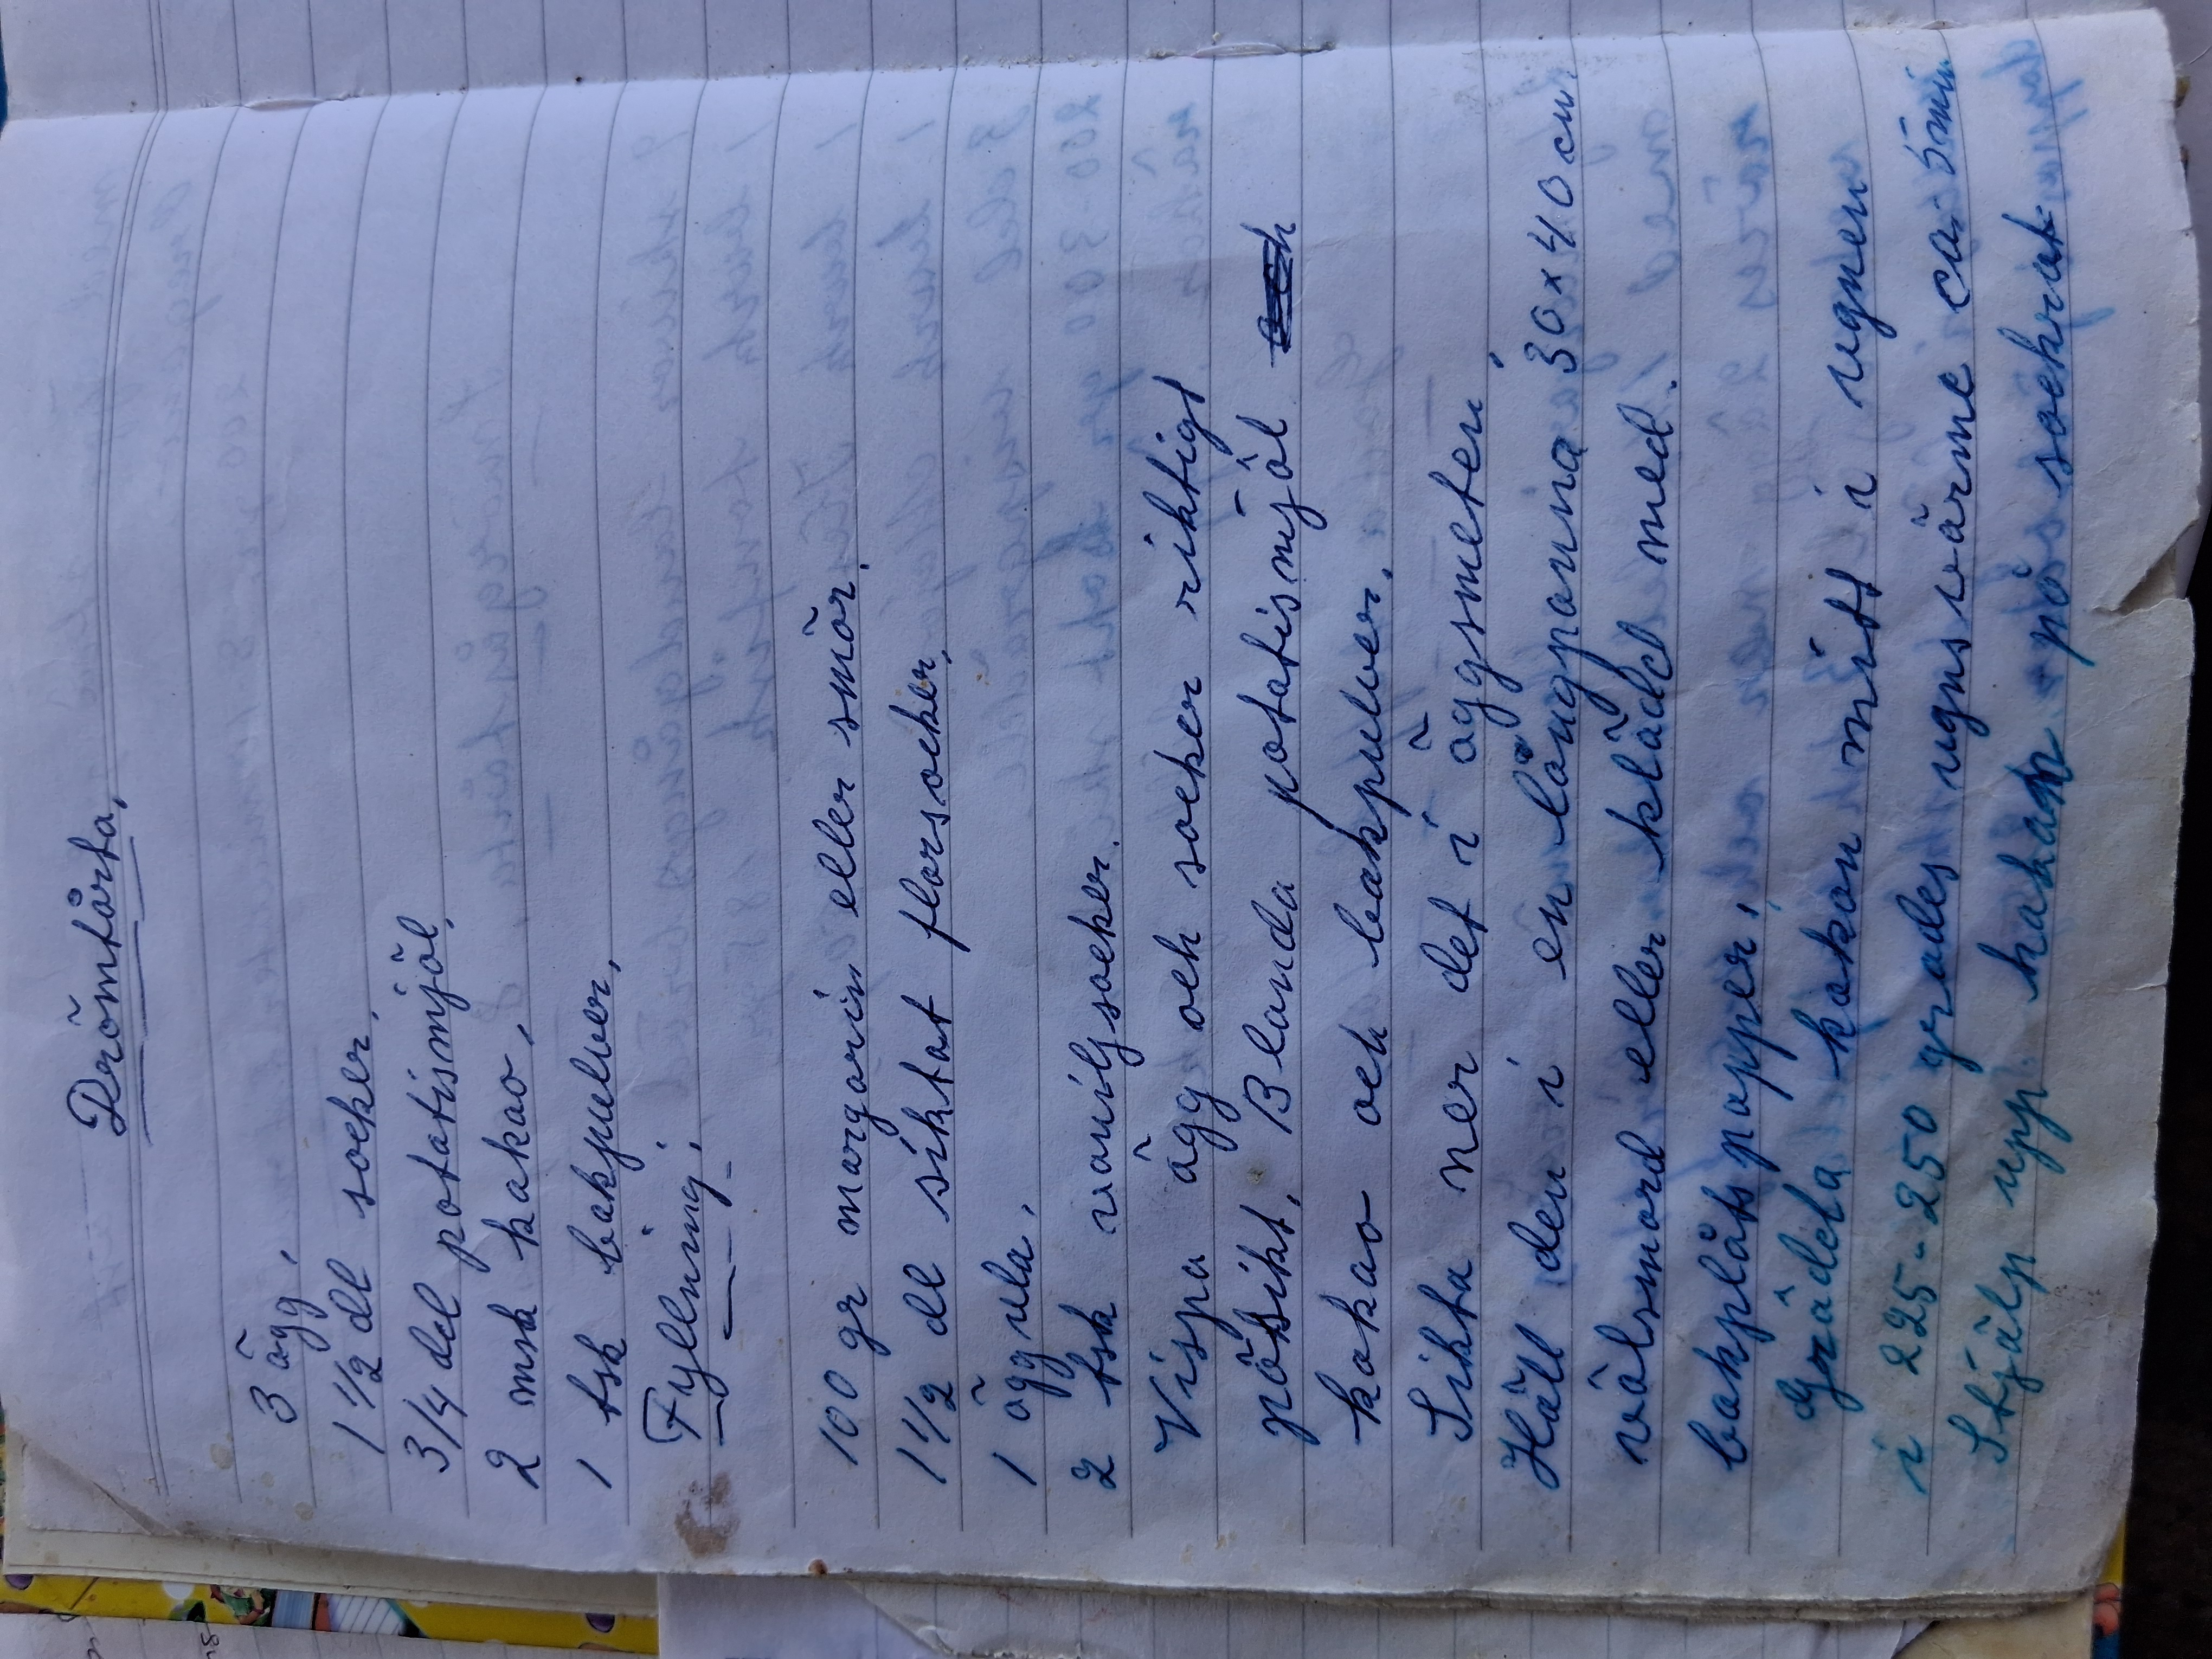 Drömtårta,
3 ägg,
1 1/2 dl socker,
3/4 dcl potatismjöl,
2 msk kakao,
1 tsk bakpulver,
Fyllning:
100 gr margarin eller smör.
1 1/2 dl siktat florsocker,
1 äggula,
2 tsk vaniljsocker.
Vispa ägg och socker riktigt
pösikt, Blanda potatismjöl och
kakao och bakpulver.
Sikta ner det i äggsmeten.
Häll den i en långpanna 30x40 cm
välsmord eller klädd med
bakplåtspapper,
Grädda kakan mitt i ugnen
i 225-250 grades ugnsvärme ca 5 min
Stjälp upp kakan på sockrat